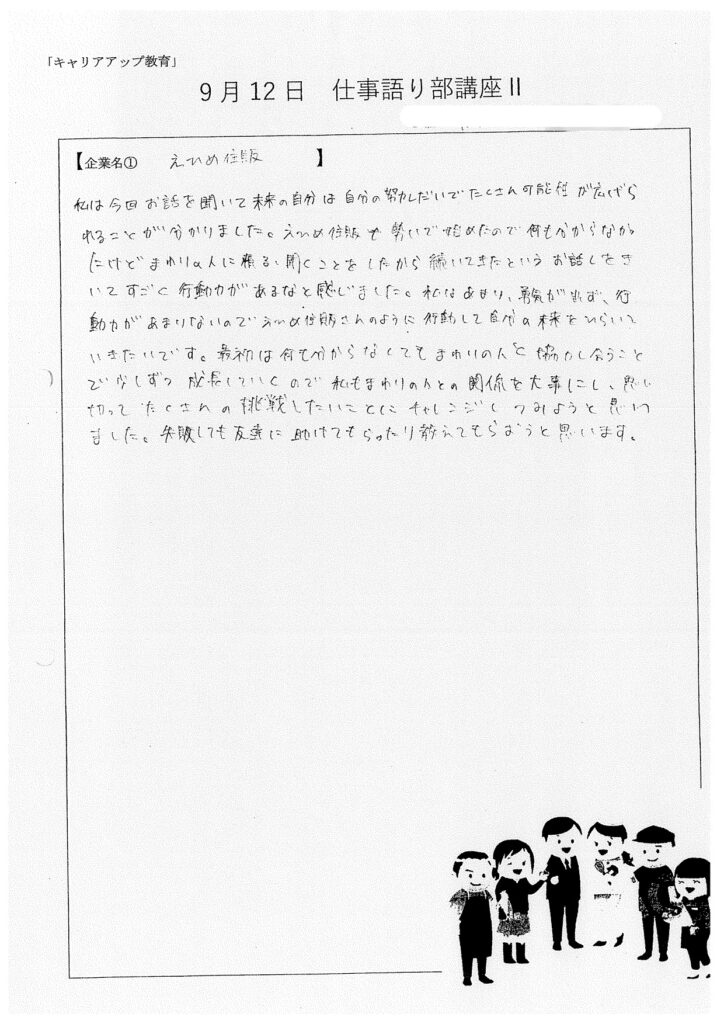 「キャリアアップ教育」
9月12日　仕事語り部講座Ⅱ
【企業名① えひめ住販 】
私は今回お話を聞いて未来の自分は自分の努力しだいでたくさん可能性が広げら
れることが分かりました。えひめ住販も勢いで始めたので何も分からなか
たけどまわりの人に頼る、聞くことをしたから続いてきたというお話しをき
いてすごく行動力があるなと感じました。私はあまり、勇気が出ず、行
動力があまりないのでえひめ住販さんのように行動して自分の未来をひらいて
いきたいです。最初は何も分からなくてもまわりの人と協力し合うこと
で少しずつ成長していくので私もまわりの人との関係を大事にし、思い
切ってたくさんの挑戦したいことにチャレンジしてみようと思い
ました。失敗しても友達に助けてもらったり教えてもらおうと思います。